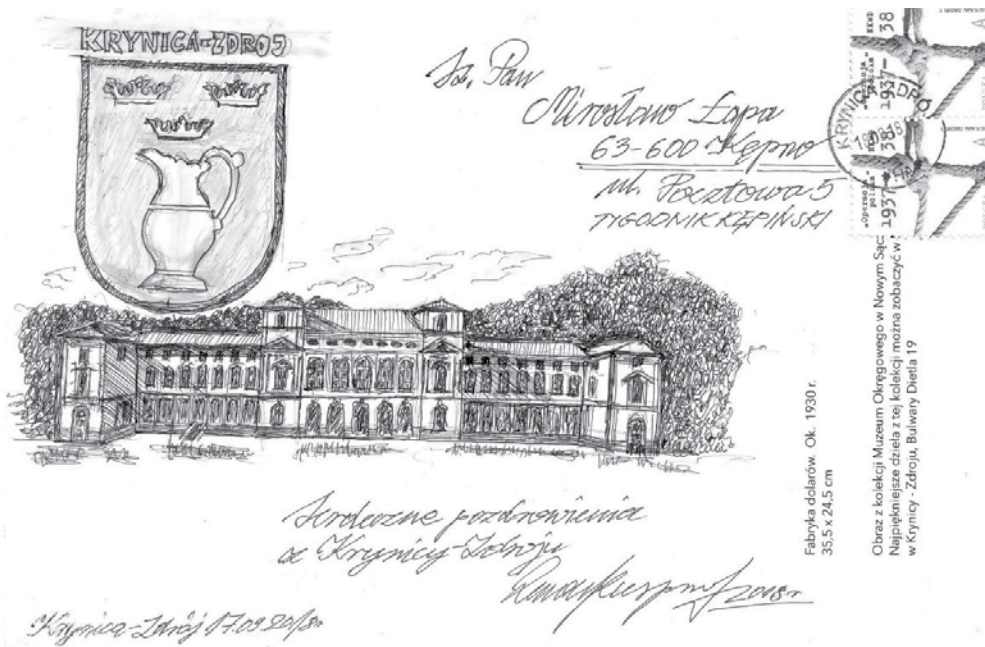 KRYNICA-ZDRÓJ
Sz. Pan
Mirosław Łapa
63-600 Kępno
ul. Pocztowa 5
TYGODNIK KĘPIŃSKI
"Operacja
polska" NKWD
1937-38
KRYNICA-ZDRÓJ
"Operacja
polska"
1937-38
Fabryka dolarów. Ok. 1930 r.
35,5 x 24,5 cm
Obraz z kolekcji Muzeum Okręgowego w Nowym Sąc
Najpiękniejsze dzieła z tej kolekcji można zobaczyć w
w Krynicy - Zdroju, Bulwary Dietla 19
Serdeczne pozdrowienia
z Krynicy-Zdroju
2018r
Krynica-Zdrój 17.09 2018r